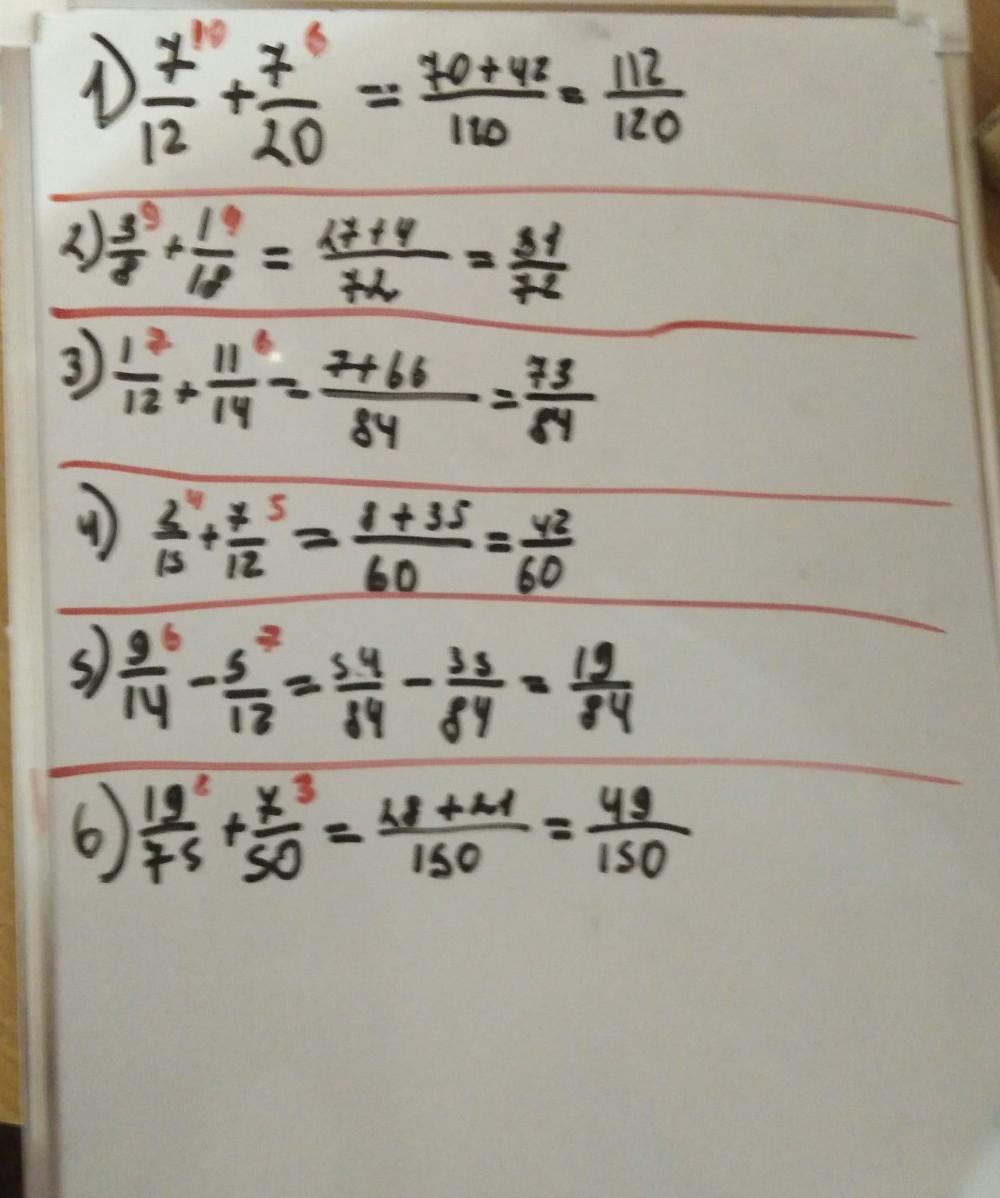 1) 7/12 ¹⁰ + 7/20 ⁶ = 70+42/120 = 112/120
2) 3/8 ⁹ + 1/18 ⁹ = 27+4/72 = 31/72
3) 1/12 ⁷ + 11/14 ⁶ = 7+66/84 = 73/84
4) 2/15 ⁴ + 7/12 ⁵ = 8+35/60 = 42/60
5) 9/14 ⁶ - 5/12 ⁷ = 54/84 - 35/84 = 19/84
6) 19/75 ² + 7/50 ³ = 28+21/150 = 49/150